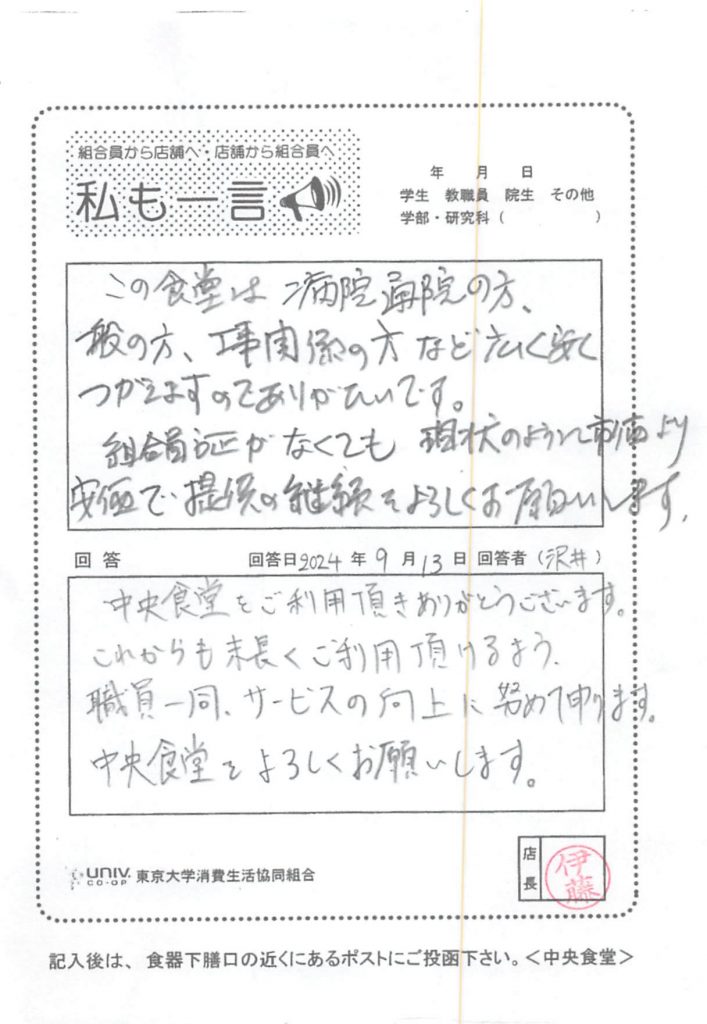 組合員から店舗へ・店舗から組合員へ
私も一言
年 月 日
学生 教職員 院生 その他
学部・研究科 ( )
この食堂は 病院通院の方、
一般の方、工事関係の方 など 広く安く
つかえますのでありがたいです。
組合員証がなくても 現状のように市価より
安価で 提供の継続をよろしくお願いします。
回答 回答日 2024 年 9 月 13 日 回答者 (沢井)
中央食堂をご利用頂きありがとうございます。
これからも末長くご利用頂けるよう、
職員一同、サービスの向上に努めて申ります。
中央食堂をよろしくお願いします。
UNIV. CO-OP 東京大学消費生活協同組合
店長 伊藤
記入後は、食器下膳口の近くにあるポストにご投函下さい。<中央食堂>